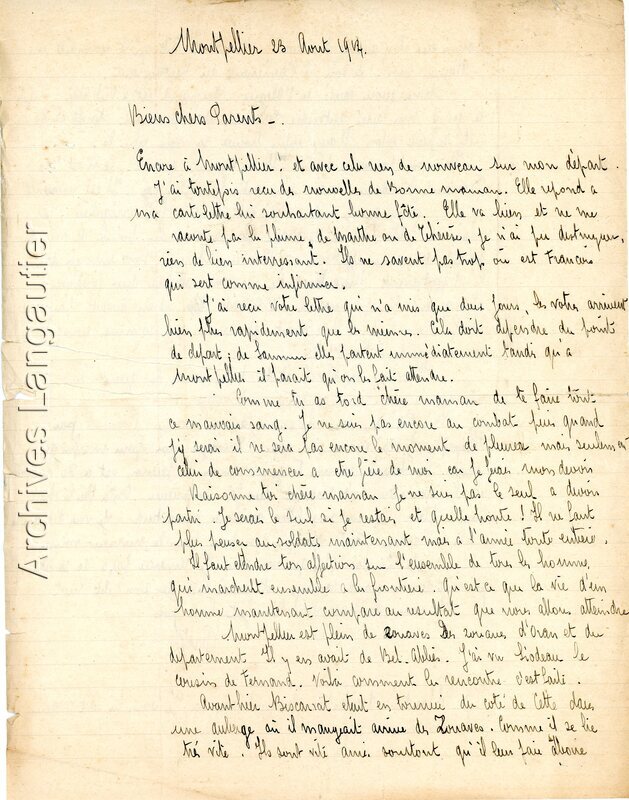 Montpellier 23 Aout 1914.
Biens chers Parents _.
Encore à Montpellier! et avec celu rien de nouveau sur mon départ.
J'ai toutefois recu des nouvelles de Bonne maman. Elle repond a
ma carte lettre lui souhaitant bonne fête. Elle va bien et ne me
raconte par la plume, de Marthe ou de Thérèse, je n'ai pu destinguer,
rien de bien interressant. Ils ne savent pas trop où est François
qui sert comme infirmier.
J'ai recu votre lettre qui n'a mis que deux jours, les votres arrivent
bien plus rapidement que les miennes. Cela doit dépendre du point
de départ; de Saumur elles partent immédiatement tandis qu'a
Montpellier il parait qu'on les fait attendre.
Comme tu as tord chère maman de te faire tout
ce mauvais sang. Je ne suis pas encore au combat puis quand
j'y serai il ne sera pas encore le moment de pleurer mais seulement
celui de commencer a etre fière de moi car je ferai mon devoir
Raisonne toi chère maman je ne suis pas le seul a devoir
partir. Je serais le seul si je restais et quelle honte! Il ne faut
plus penser aux soldats maintenant mais a l'armée toute entière.
Il faut etendre tes affections sur l'ensemble de tous les hommes
qui marchent ensemble a la frontière. Qu'est ce que la vie d'un
homme maintenant comparé au resultat que nous allons atteindre
Montpellier est plein de zouaves Des zouaves d'Oran et du
département Il y en avait de Bel-Abbès. J'ai vu Liodeau le
cousin de Fernand. Voila comment la rencontre s'est faite.
Avant hier Biscarrat etait en tournée du coté de Cette dans
une auberge où il mangeait arrive des Zouaves. Comme il se lie
trés vite. Ils sont vite amis surtout qu'il leur fait boire
Archives Langautier